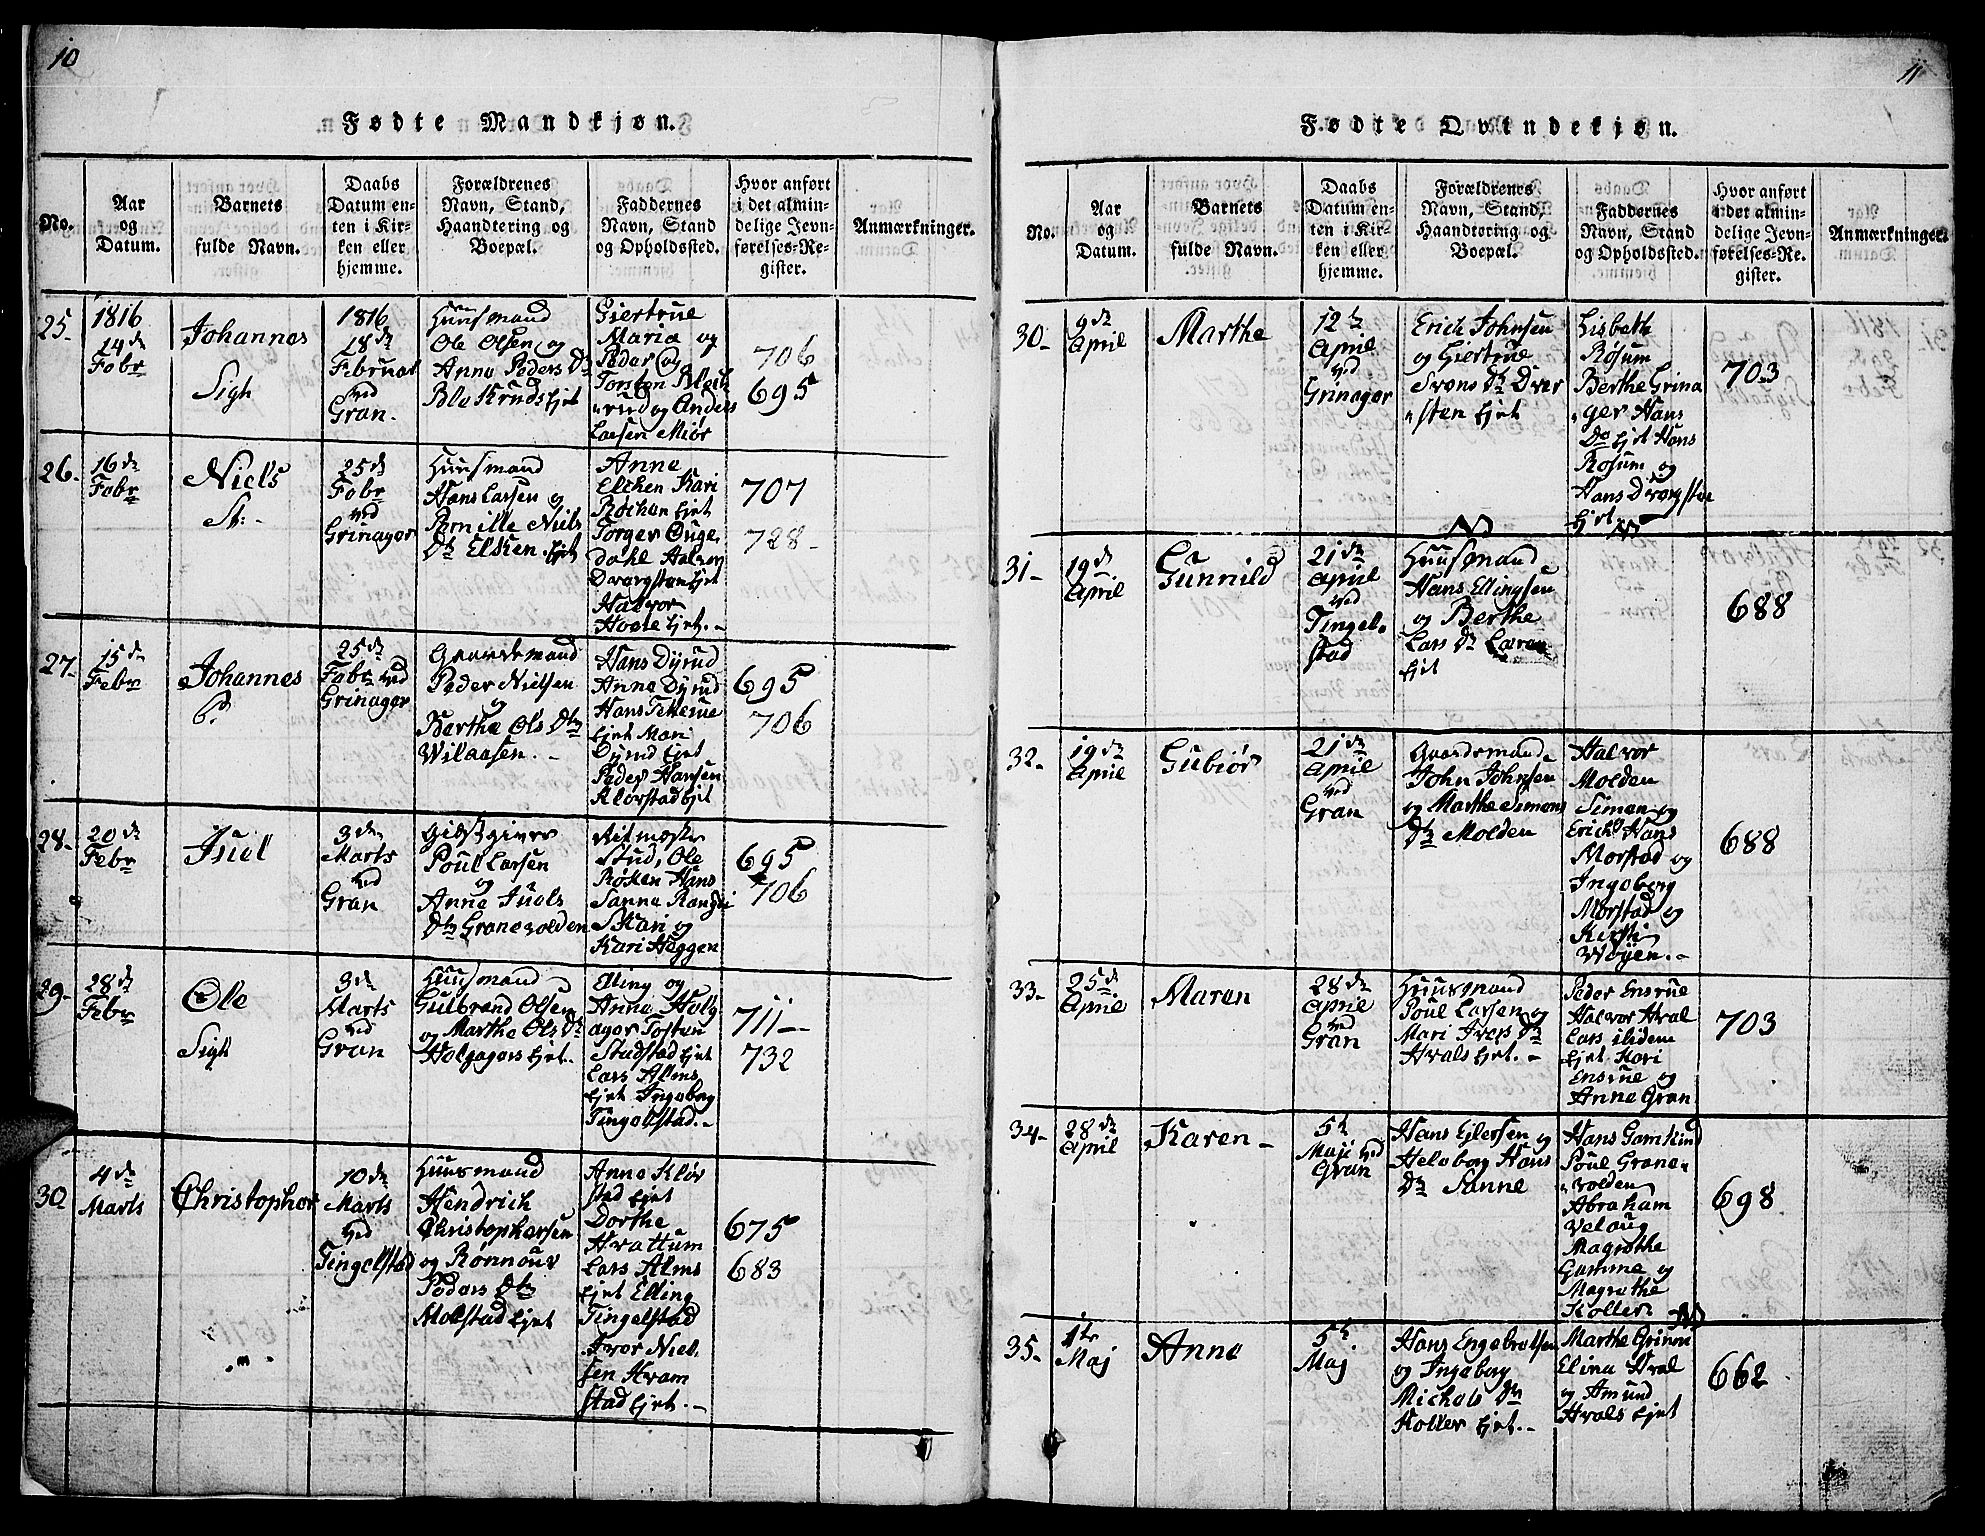 10
Fødte Mandkjøn.
No.
Aar
og
Datum.
Barnets
fulde Navn.
Daabs
Datum en-
ten i Kir-
ken eller
hjemme.
Forældrenes
Navn, Stand,
Haandtering og
Boepæl.
Faddernes
Navn, Stand
og Opholdssted.
Hvor anført
i det almin-
delige Jevn-
førelses-Re-
gister.
Anmærkninger.
25.
1816
24 de
Febr
Johannes
Sigh
1816
28 de
Februar
ved
Gran.
Huusmand
Ole Olsen og
Anne Peders Dr
Blekruds Ejet
Giertrue
Maria og
Peder og
Torsten
rud og Anders
Larsen Miør
706
695
26.
16 de
Febr
Niels
St:
25 de
Febr
ved
Grinager
Huusmand
Hans Larsen og
Pernille Niels
Dtr Elken Ejet
Anne
Elken Kari
Røcken Ejet
Torger Ouge
Dahl Halvor
Dvergsten Ejet
Halvor
Hoele Ejet.
707
728
27.
15 de
Febr
Johannes
P.
25 de
Febr ved
Grinager
Gaardemand
Peder Nielsen
og
Berthe Ols Dtr
Wilaasen.
Hans Dyrud
Anne Dyrud
Hans Tekerue
Ejet Mari
Dyrud Ejet
Peder Hansen
Alorstad Ejet
695
706
28.
20 de
Febr
Juel
3 de
Marts
ved
Gran
Giestgiver
Poul Larsen
og
Anne Juels
Dtr Granevolden
Ritmester
Stud, Ole
Røken Hans
Sanne Rangdi
Skari og
Kari Heggen
695
706
29.
28 de
Febr
Ole
Sigh
3 de
Marts
ved
Gran
Huusmand
Gulbrand Olsen
og Marthe Ols Dr
Helgagers Ejet.
Elling og
Anne Helg
ager Tosten
Stadstad Ejet
Lars Alms
Ejet Ingeborg
Tingelstad.
711
732
30
4 de
Marts
Christopher
10 de
Marts
ved
Tingelstad
Huusmand
Hendrich
Christophersen
og Rønnouv
Peders Dtr
Molstad Ejet
Anne Klør
stad Ejet
Dorthe
Hvattum
Lars Alms
Ejet Elling
Tingelstad
Iver Niel
sen Hvam
stad Ejet.
675
683
11
Fødte Qvindekjøn.
No.
Aar
og
Datum.
Barnets
fulde Navn.
Daabs
Datum en-
ten i Kir-
ken eller
hjemme.
Forældrenes
Navn, Stand,
Haandtering og
Boepæl.
Faddernes
Navn, Stand
og Opholdssted.
Hvor anført
i det almin-
delige Jevn-
førelses-Re-
gister.
Anmærkninger.
30
9 de
April
Marthe
12 te
April
ved
Grinager
Erich Johnsen
og Giertrue
Svens Dtr Dver
sten Ejet
Lisbeth
Røsum
Berthe Grina
ger Hans
Do Ejet Hans
Rosum og
Hans Dvergsten
Ejet
703
31
19 de
April
Gunnild
21 de
April
ved
Tingel-
stad
Huusmand
Hans Ellingsen
og Berthe
Lars Dr Læren
Ejet
688
32
19 de
April
Gubiør
21 de
April
ved
Gran
Gaardsmand
John Johnsen
og Marthe Simens
Dtr Molden
Halvor
Molden
Simen og
Erich Hans
Morstad og
Ingeborg
Morstad og
Kirsti
Wøyen.
688
33
25 de
April
Maren
28 de
April
ved
Gran
Huusmand
Poul Larsen og
Mari Ivers Dr
Hvals Ejet.
Peder Ensrue
Halvor Hval
Lars ibidem
Ejet Kari
Ensrue og
Anne Gran
703
34
28 de
April
Karen
5 te
Maji ved
Gran
Hans Ejlersen og
Helvborg Hans
Dr Sanne
Hans Gamkind
Poul Grane-
volden
Abraham
Velaug
Magrethe
Gamme og
Magrethe
Koller
698
35
1 te
Maj
Anne
5 te
Maj
Hans Engebretsen
og Ingeborg
Michels Dr
Koller Ejet.
Marthe Grinna
Elina Hval
og Amund
Hvals Ejet
662